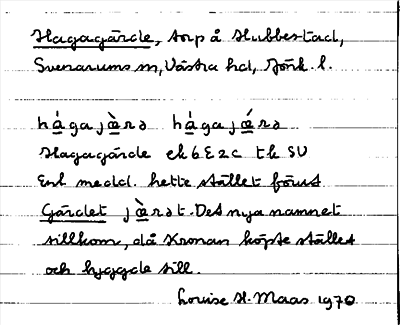 Hagagärde, torp å Hubbestad,
Svenarums sn, Västra hd, Jönk. l.
hágajæ̀rə hágajǽrə
Hagagärde ek 6E2c tk SV
Enl medd. hette stället förut
Gärdet jæ̀rət. Det nya namnet
tillkom, då Kronan köpte stället
och byggde till.
Louise H. Maas 1970